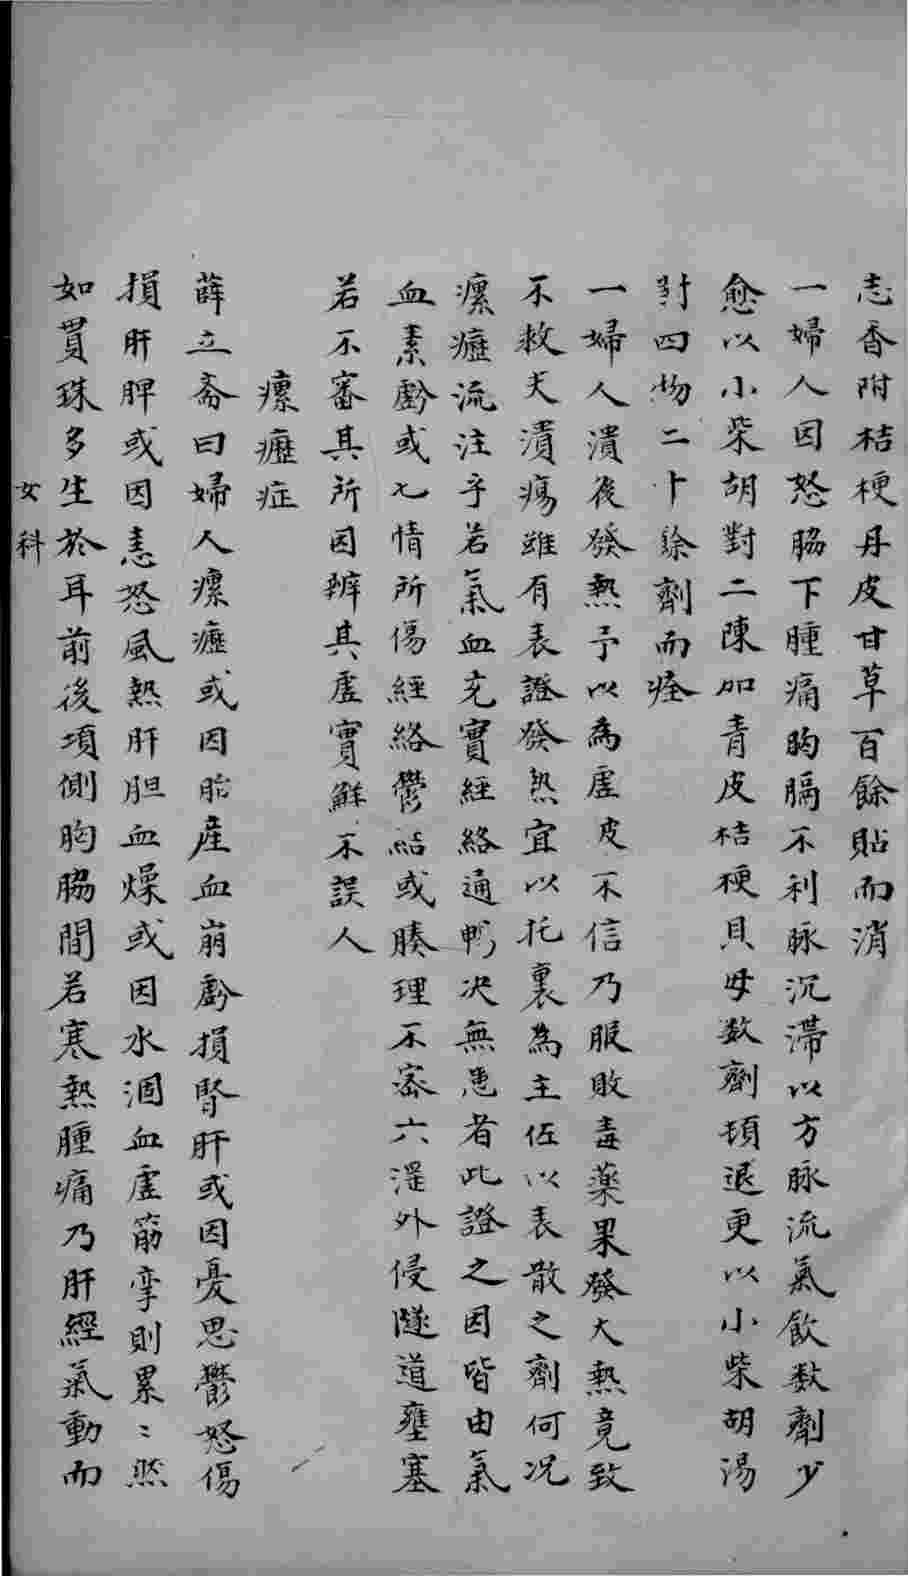 志香附桔梗丹皮甘草百餘貼而消
一婦人因怒脇下腫痛胸膈不利脉沉滯以方脉流氣飲数劑少
愈以小柴胡對二陳加青皮桔梗貝母数劑頓退更以小柴胡湯
對四物二十餘劑而痊
一婦人潰後發熱予以為虛皮不信乃服敗毒藥果發大熱竟致
不救夫潰瘍雖有表證發熱宜以托裏為主佐以表散之劑何况
瘰癧流注乎若氣血充實經絡通暢决無患者此證之因皆由氣
血素虧或七情所傷經絡鬱結或腠理不密六淫外侵隧道壅塞
若不審其所因辨其虛實鮮不誤人
瘰癧症
薛立斋曰婦人瘰癧或因胎產血崩虧損腎肝或因憂思鬱怒傷
損肝脾或因恚怒風熱肝胆血燥或因水涸血虛筋孪則累〻然
如貫珠多生於耳前後項側胸脇間若寒熱腫痛乃肝經氣動而
女科